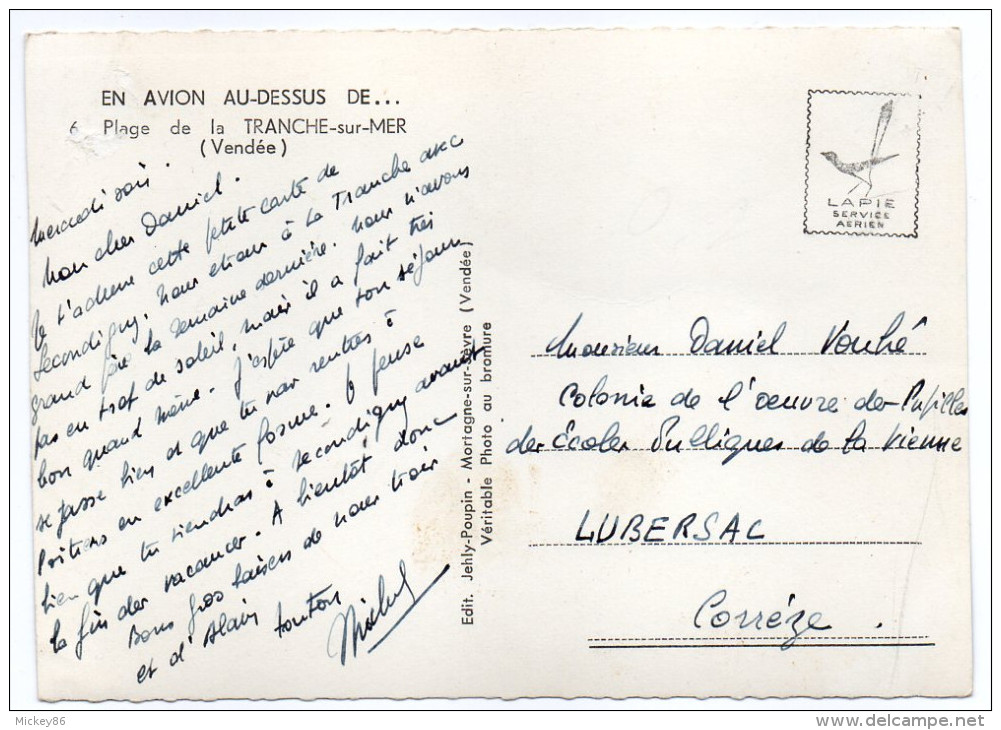 EN AVION AU-DESSUS DE...
6 Plage de la TRANCHE-sur-MER
(Vendée)
Mercredi soir.
Mon cher Daniel.
Je t'adresse cette petite carte de
Secondigny. Nous étions à La Tranche avec
grand père la semaine dernière. Nous n'avons
pas eu trop de soleil, mais il a fait très
bon quand même. J'espère que ton séjour
se passe bien et que tu vas rentrer à
Poitiers en excellente forme. Je pense
bien que tu viendras à Secondigny avant
la fin des vacances. A bientôt donc
Bons gros baisers de nous trois
et d'Alain tonton
Michel
Edit. Jehly-Poupin - Mortagne-sur-Sèvre (Vendée)
Véritable Photo au bromure
LAPIE
SERVICE
AERIEN
Monsieur Daniel Vouhé
Colonie de l'oeuvre des Pupilles
des Écoles Publiques de la Vienne
LUBERSAC
Corrèze.
Mickey86
www.delcampe.net